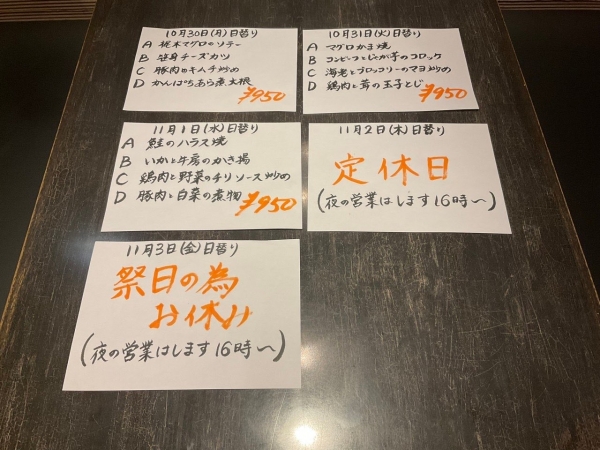 10月30日(月)日替り
A 梶木マグロのソテー
B 笹身チーズカツ
C 豚肉のキムチ炒め
D かんぱちあら煮大根
¥950
10月31日(火)日替り
A マグロかま焼
B コンビーフとじゃが芋のコロッケ
C 海老とブロッコリーのマヨ炒め
D 鶏肉と茸の玉子とじ
¥950
11月1日(水)日替り
A 鮭のハラス焼
B いかと牛房のかき揚
C 鶏肉と野菜のチリソース炒め
D 豚肉と白菜の煮物
¥950
11月2日(木)日替り
定休日
(夜の営業はします16時〜)
11月3日(金)日替り
祭日の為
お休み
(夜の営業はします16時〜)